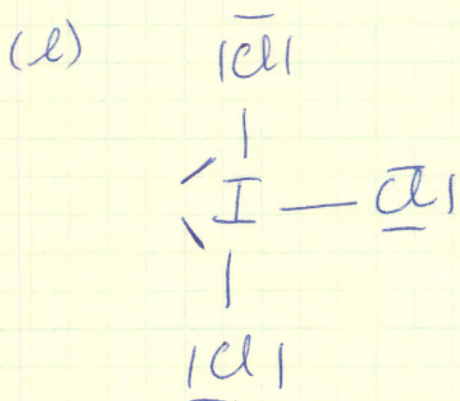 (l)
|Cl|
I — Cl|
|Cl|